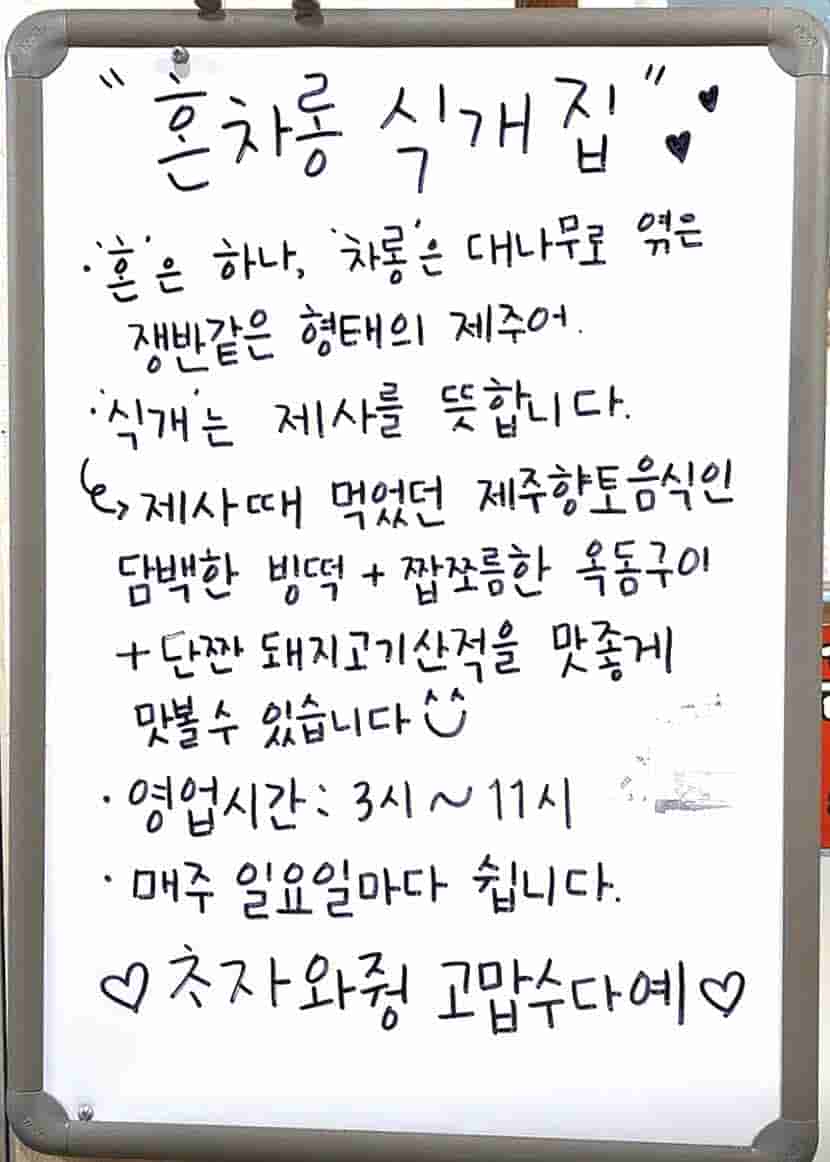 "혼차롱 식개집" ♥♥
· '혼'은 하나, '차롱'은 대나무로 엮은
쟁반같은 형태의 제주어.
· '식개'는 제사를 뜻합니다.
↳ 제사때 먹었던 제주향토음식인
담백한 빙떡 + 짭쪼름한 옥동구이
+ 단짠 돼지고기산적을 맛좋게
맛볼수 있습니다^^
· 영업시간: 3시~11시
· 매주 일요일마다 쉽니다.
♡ᄎᆞ자와줭 고맙수다예♡